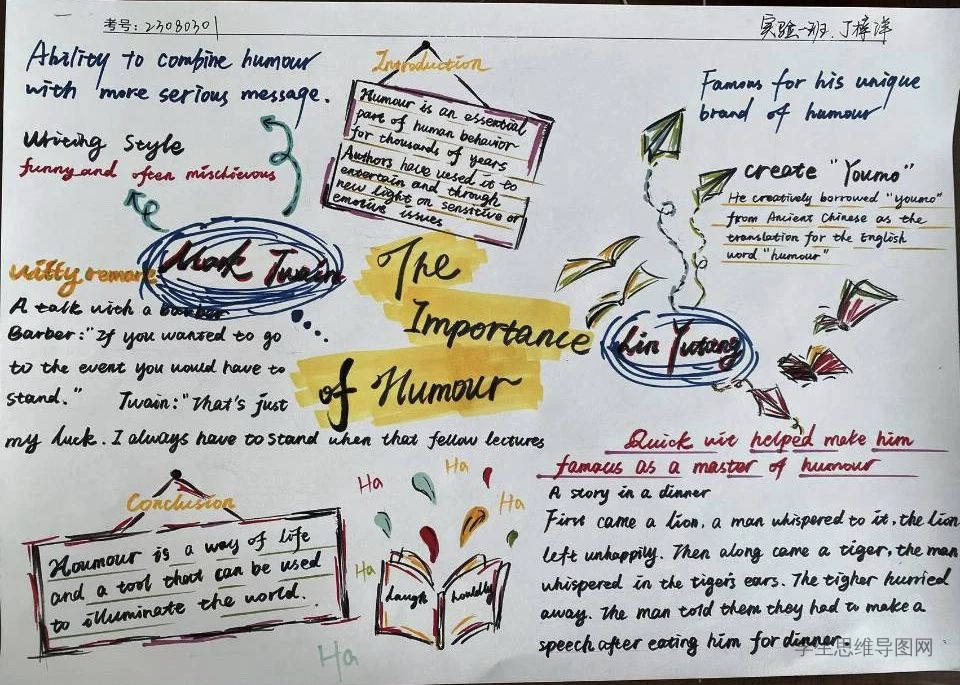 考号:23080301
实验一班.丁梓洋
Ability to combine humour
with more serious message.
Writing Style
funny and often mischievous
Mark Twain
witty remark
A talk with a barber
Barber:"If you wanted to go
to the event you would have to
stand." Twain:"That's just
my luck. I always have to stand when that fellow lectures
Introduction
Humour is an essential
part of human behavior
for thousands of years
Authors have uesed it to
entertain and through
new light on sensitive or
emotive issues
The
Importance
of Humour
Famous for his unique
brand of humour
create "Youmo"
He creatively borrowed "youmo"
from Ancient Chinese as the
translation for the English
word "humour"
Lin Yutang
Quick wit helped make him
famous as a master of humour
A story in a dinner
First came a lion, a man whispered to it, the lion
left unhappily. Then along came a tiger, the man
whispered in the tiger's ears. The tigher hurried
away. The man told them they had to make a
speech after eating him for dinner.
Conclusion
Houmour is a way of life
and a tool that can be used
to illuminate the world.
Ha
Ha
Ha
Ha
Ha
laugh
学生思维导图网